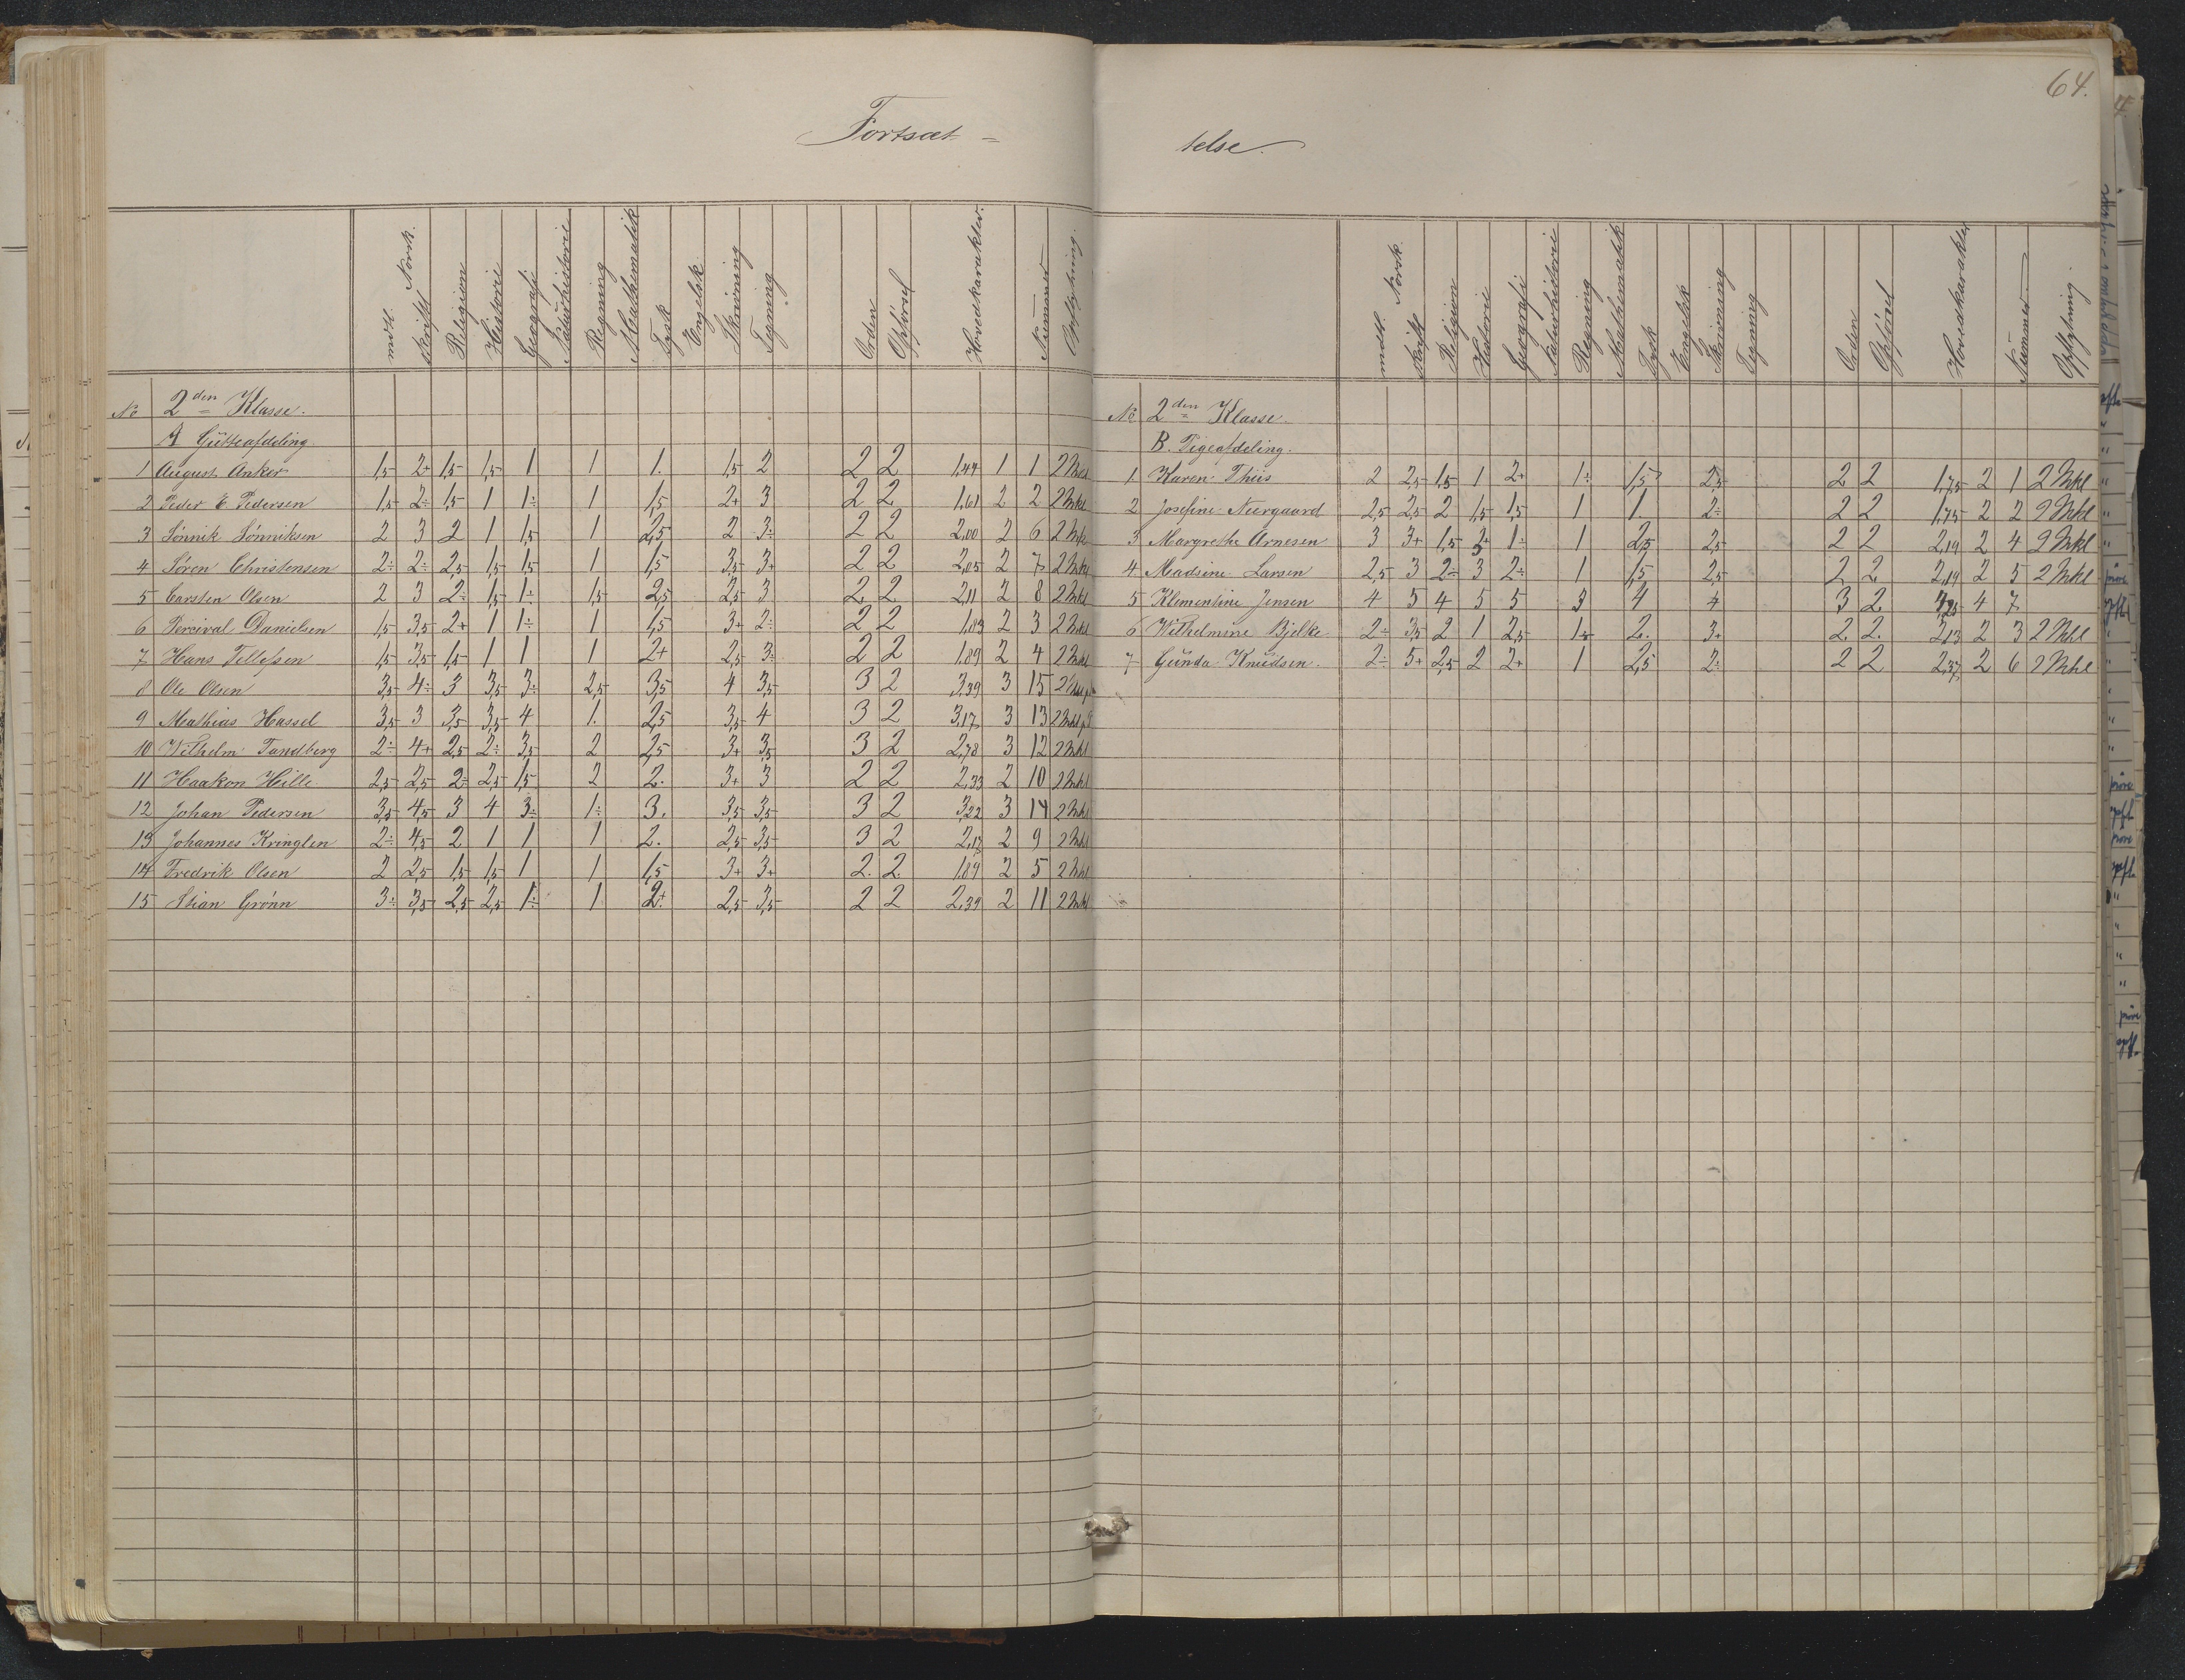 64.
Fortsæt = telse.
mdtl. skriftl. Norsk. Religion Historie Geografi Naturhistorie Regning Mathematik Tysk Engelsk Skrivning Tegning Orden Opførsel Hovedkarakter. Nummer Opflytning.
No 2den Klasse.
A Gutteafdeling.
1 August Anker 1,5 2+ 1,5 1,5 1 1 1. 1,5 2 2 2 1,44 1 1 2 Mkl
2 Peder E Pedersen 1,5 2÷ 1,5 1 1÷ 1 1,5 2+ 3 2 2 1,61 2 2 2 Mkl
3 Sønnik Sønniksen 2 3 2 1 1,5 1 2,5 2 3÷ 2 2 2,00 2 6 2 Mkl
4 Søren Christensen 2÷ 2÷ 2,5 1,5 1,5 1 1,5 3,5 3+ 2 2 2,05 2 7 2 Mkl
5 Carsten Olsen 2 3 2÷ 1,5 1÷ 1,5 2,5 2,5 3 2 2 2,11 2 8 2 Mkl
6 Percival Danielsen 1,5 3,5 2+ 1 1÷ 1 1,5 3+ 2÷ 2 2 1,83 2 3 2 Mkl
7 Hans Tellefsen 1,5 3,5 1,5 1 1 1 2+ 2,5 3÷ 2 2 1,89 2 4 2 Mkl
8 Ole Olsen 3,5 4÷ 3 3,5 3÷ 2,5 3,5 4 3,5 3 2 3,39 3 15
9 Mathias Hassel 3,5 3 3,5 3,5 4 1. 2,5 3,5 4 3 2 3,17 3 13 2 Mkl
10 Wilhelm Tandberg 2÷ 4+ 2,5 2÷ 3,5 2 2,5 3+ 3,5 3 2 2,78 3 12 2 Mkl
11 Haakon Hille 2,5 2,5 2÷ 2,5 1,5 2 2. 3+ 3 2 2 2,33 2 10 2 Mkl
12 Johan Pedersen 3,5 4,5 3 4 3÷ 1÷ 3. 3,5 3,5 3 2 3,22 3 14 2 Mkl
13 Johannes Kringlen 2÷ 4,5 2 1 1 1 2. 2,5 3,5 3 2 2,17 2 9 2 Mkl
14 Fredrik Olsen 2 2,5 1,5 1,5 1 1 1,5 3+ 3+ 2. 2. 1,89 2 5 2 Mkl
15 Stian Grønn 3÷ 3,5 2,5 2,5 1÷ 1 2+ 2,5 3,5 2 2 2,39 2 11 2 Mkl
mdtl. skriftl. Norsk. Religion Historie Geografi Naturhistorie Regning Mathematik Tysk Engelsk Skrivning Tegning Orden Opførsel Hovedkarakter Nummer Opflytning.
No 2den Klasse.
B. Pigeafdeling.
1 Karen Thiis 2 2,5 1,5 1 2+ 1÷ 1,5 2,5 2 2 1,75 2 1 2 Mkl
2 Josefine Neergaard 2,5 2,5 2 1,5 1,5 1 1. 2÷ 2 2 1,75 2 2 2 Mkl
3 Margrethe Arnesen 3 3+ 1,5 1÷ 1 2,5 2,5 2 2 2,19 2 4 2 Mkl
4 Madsine Larsen 2,5 3 2÷ 3 2÷ 1 1,5 2,5 2 2 2,19 2 5 2 Mkl
5 Klementine Jensen 4 5 4 5 5 3 4 4 3 2 4,25 4 7
6 Wilhelmine Bjelke 2÷ 3,5 2 1 2,5 2. 3+ 2. 2. 2,13 2 3 2 Mkl
7 Gunda Knudsen. 2÷ 5+ 2,5 2 2+ 1 2,5 2÷ 2 2 2,37 2 6 2 Mkl